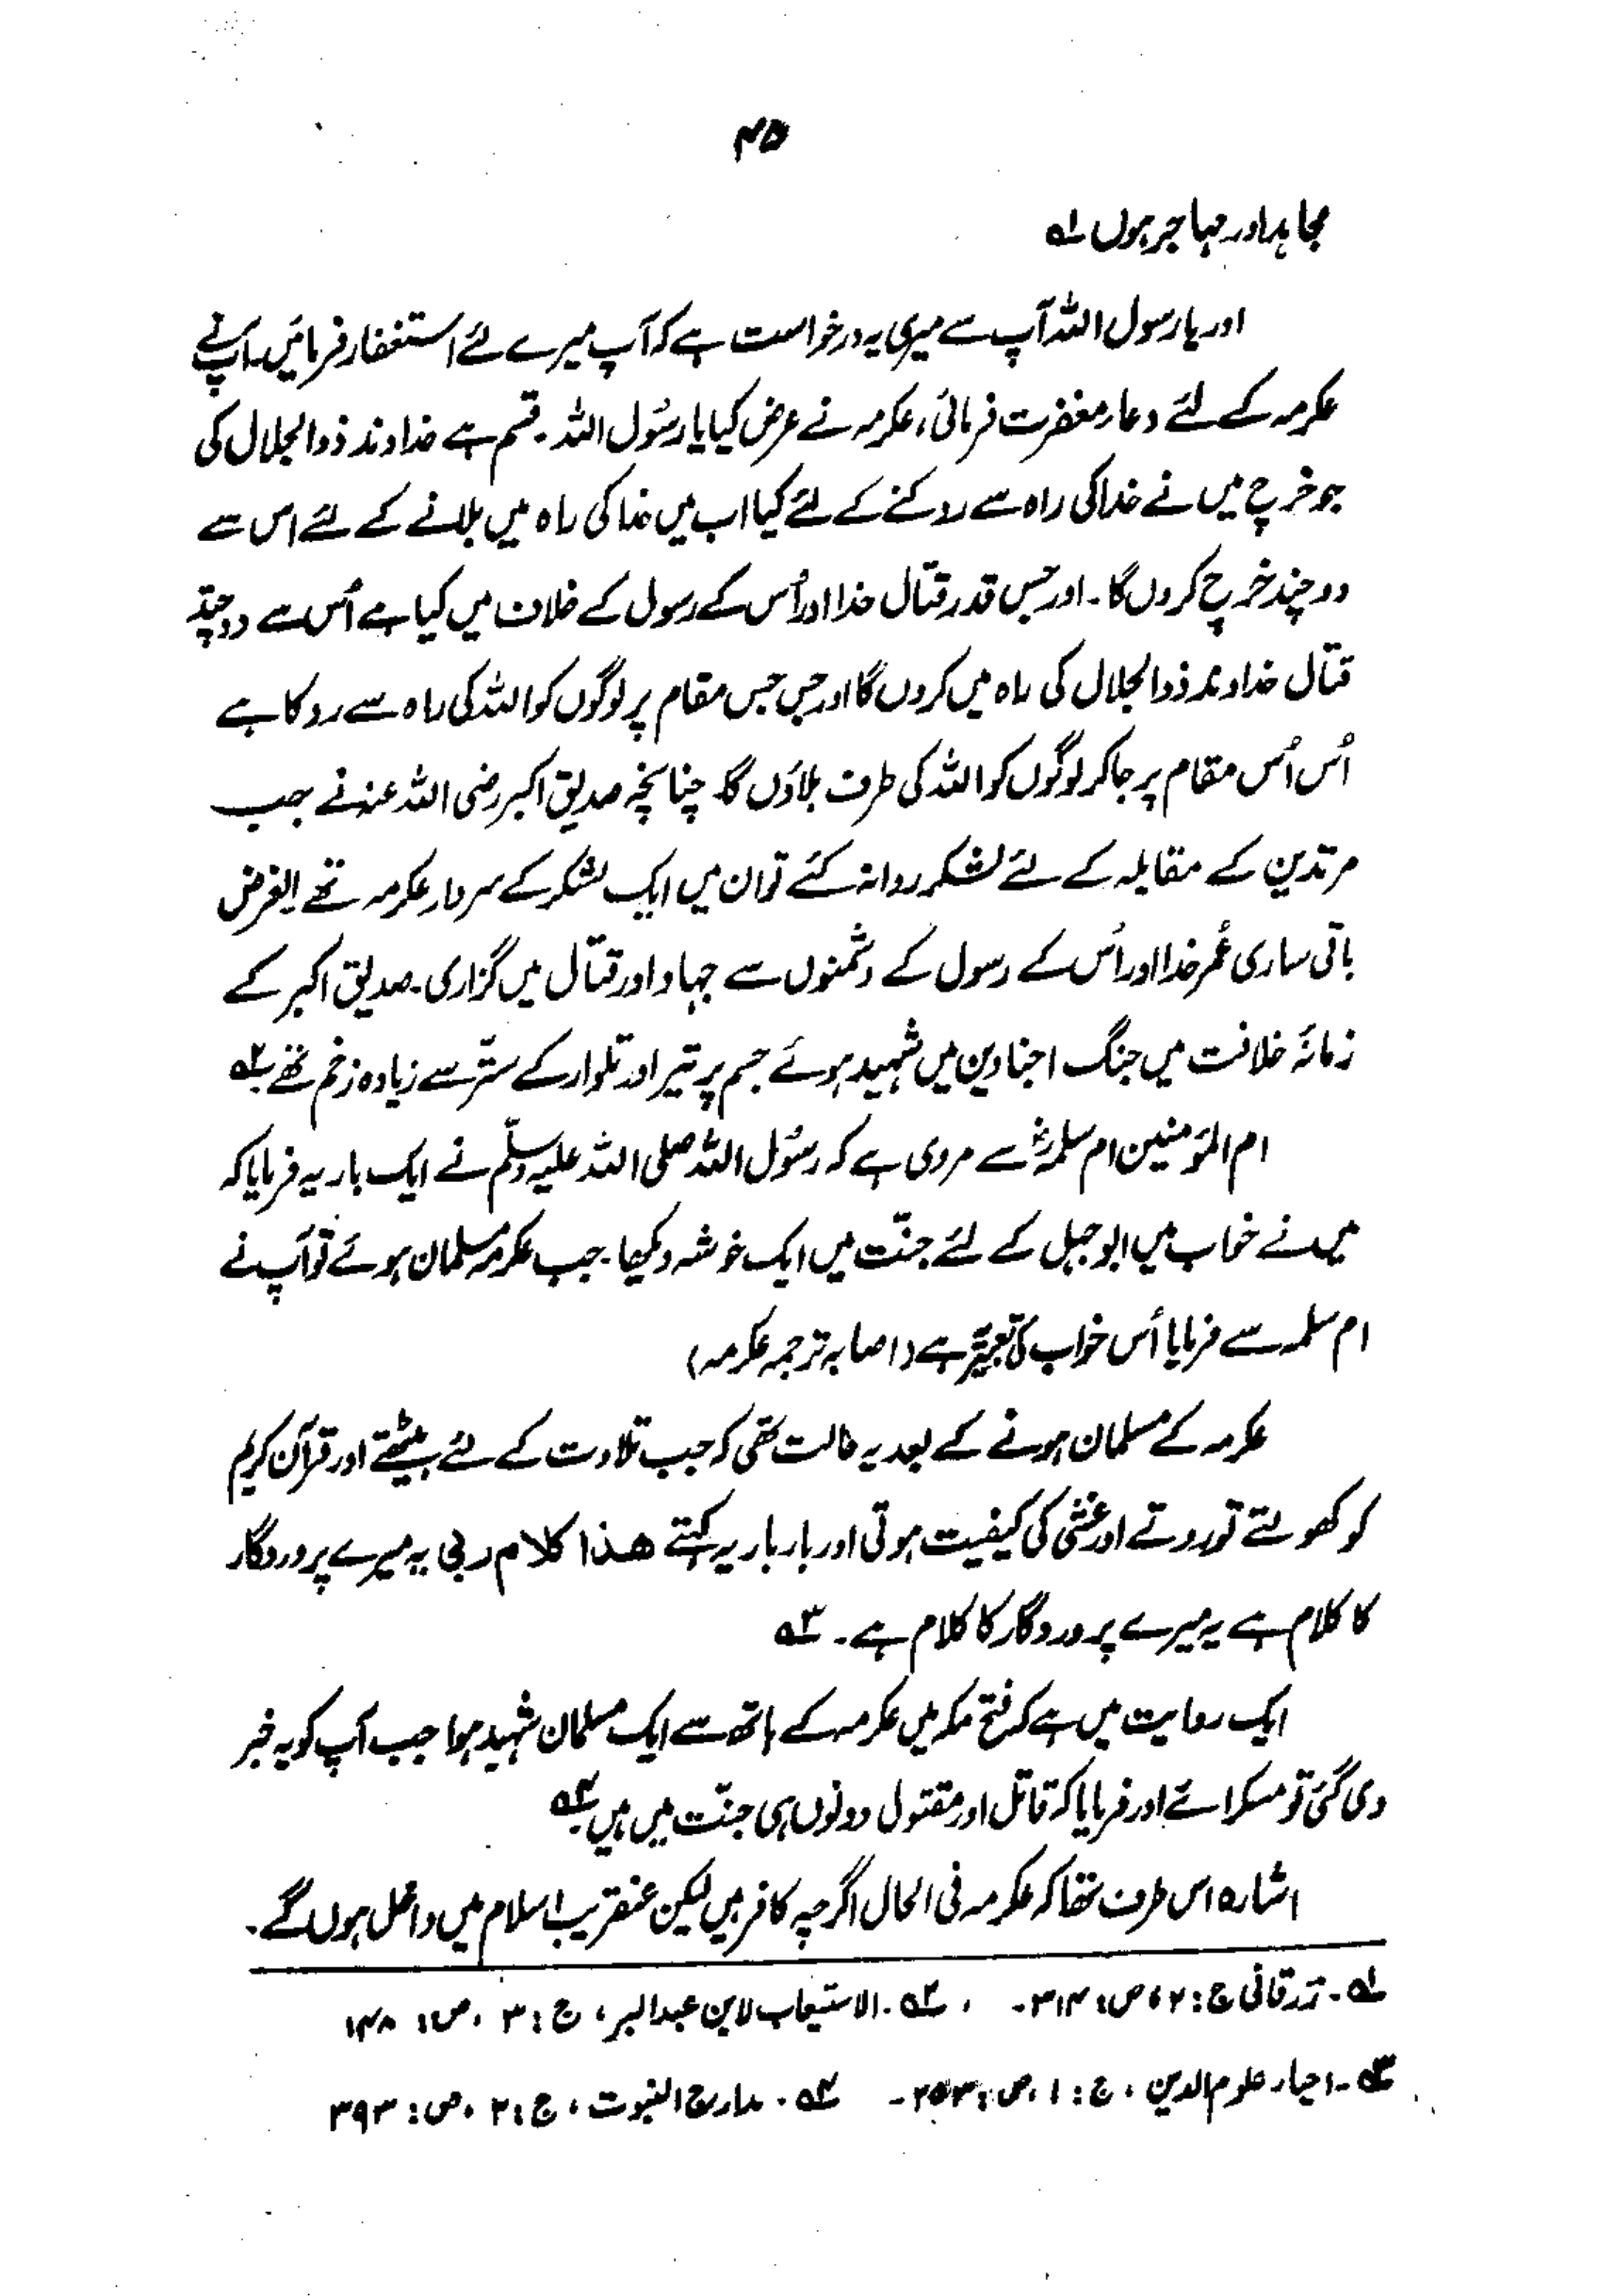 ۴۵
مجاہد اور مہاجر ہوں ۱؎
اور یا رسول اللہ آپ سے میری یہ درخواست ہے کہ آپ میرے لئے استغفار فرمائیں۔ آپ نے
عکرمہ کے لئے دعاء مغفرت فرمائی، عکرمہ نے عرض کیا یا رسُول اللہ۔ قسم ہے خداوند ذوالجلال کی
جو خرچ میں نے خدا کی راہ سے روکنے کے لئے کیا اب میں خدا کی راہ میں بلانے کے لئے اس سے
دو چند خرچ کروں گا۔ اور جس قدر قتال خدا اور اُس کے رسول کے خلاف میں کیا ہے اُس سے دو چند
قتال خداوند ذوالجلال کی راہ میں کروں گا اور جس جس مقام پر لوگوں کو اللہ کی راہ سے روکا ہے
اُس اُس مقام پر جا کر لوگوں کو اللہ کی طرف بلاؤں گا۔ چنانچہ صدیق اکبر رضی اللہ عنہ نے جب
مرتدین کے مقابلہ کے لئے لشکر روانہ کئے تو ان میں ایک لشکر کے سردار عکرمہ تھے الغرض
باقی ساری عُمر خدا اور اُس کے رسول کے دشمنوں سے جہاد اور قتال میں گزاری۔ صدیق اکبر کے
زمانۂ خلافت میں جنگ اجنادین میں شہید ہوئے جسم پر تیر اور تلوار کے ستّر سے زیادہ زخم تھے ۲؎
ام المؤمنین ام سلمہؓ سے مروی ہے کہ رسُول اللہ صلی اللہ علیہ وسلّم نے ایک بار یہ فرمایا کہ
میں نے خواب میں ابو جہل کے لئے جنّت میں ایک خوشہ دیکھا۔ جب عکرمہ مسلمان ہوئے تو آپ نے
ام سلمہ سے فرمایا اُس خواب کی تعبیر یہ ہے (اصابہ ترجمہ عکرمہ)
عکرمہ کے مسلمان ہونے کے بعد یہ حالت تھی کہ جب تلاوت کے لئے بیٹھتے اور قرآن کریم
کو کھولتے تو روتے اور غشی کی کیفیت ہوتی اور بار بار یہ کہتے ھذا کلام ربی یہ میرے پروردگار
کا کلام ہے یہ میرے پروردگار کا کلام ہے۔ ۳؎
ایک روایت میں ہے کہ فتح مکہ میں عکرمہ کے ہاتھ سے ایک مسلمان شہید ہوا جب آپ کو یہ خبر
دی گئی تو مسکرائے اور فرمایا کہ قاتل اور مقتول دونوں ہی جنّت میں ہیں ۴؎
اشارہ اس طرف تھا کہ عکرمہ فی الحال اگرچہ کافر ہیں لیکن عنقریب اسلام میں داخل ہوں گے۔
۱؎۔ زرقانی ج: ۲، ص: ۳۱۴۔ ، ۲؎۔ الاستیعاب لابن عبدالبر، ج: ۳، ص: ۱۴۸
۳؎۔ احیاء علوم الدین، ج: ۱، ص: ۲۵۳۔ ۴؎۔ مدارج النبوت، ج: ۲، ص: ۳۹۳